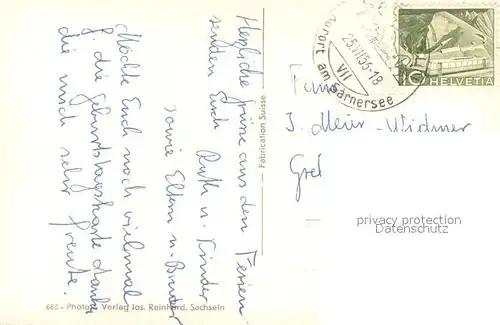 Herzliche Grüsse aus den Ferien
senden Euch Ruth u. Kinder
sowie Eltern u. Bruder
Möchte Euch noch vielmal
f. die Geburtstagskarte danken
die mich sehr freute.
Fabrication Suisse
662 - Photo u. Verlag Jos. Reinhard, Sachseln
Kurort am Sarnersee
25.VII.56-18
VII
10
HELVETIA
Fam.
J. Meier-Widmer
Gret
privacy protection
Datenschutz